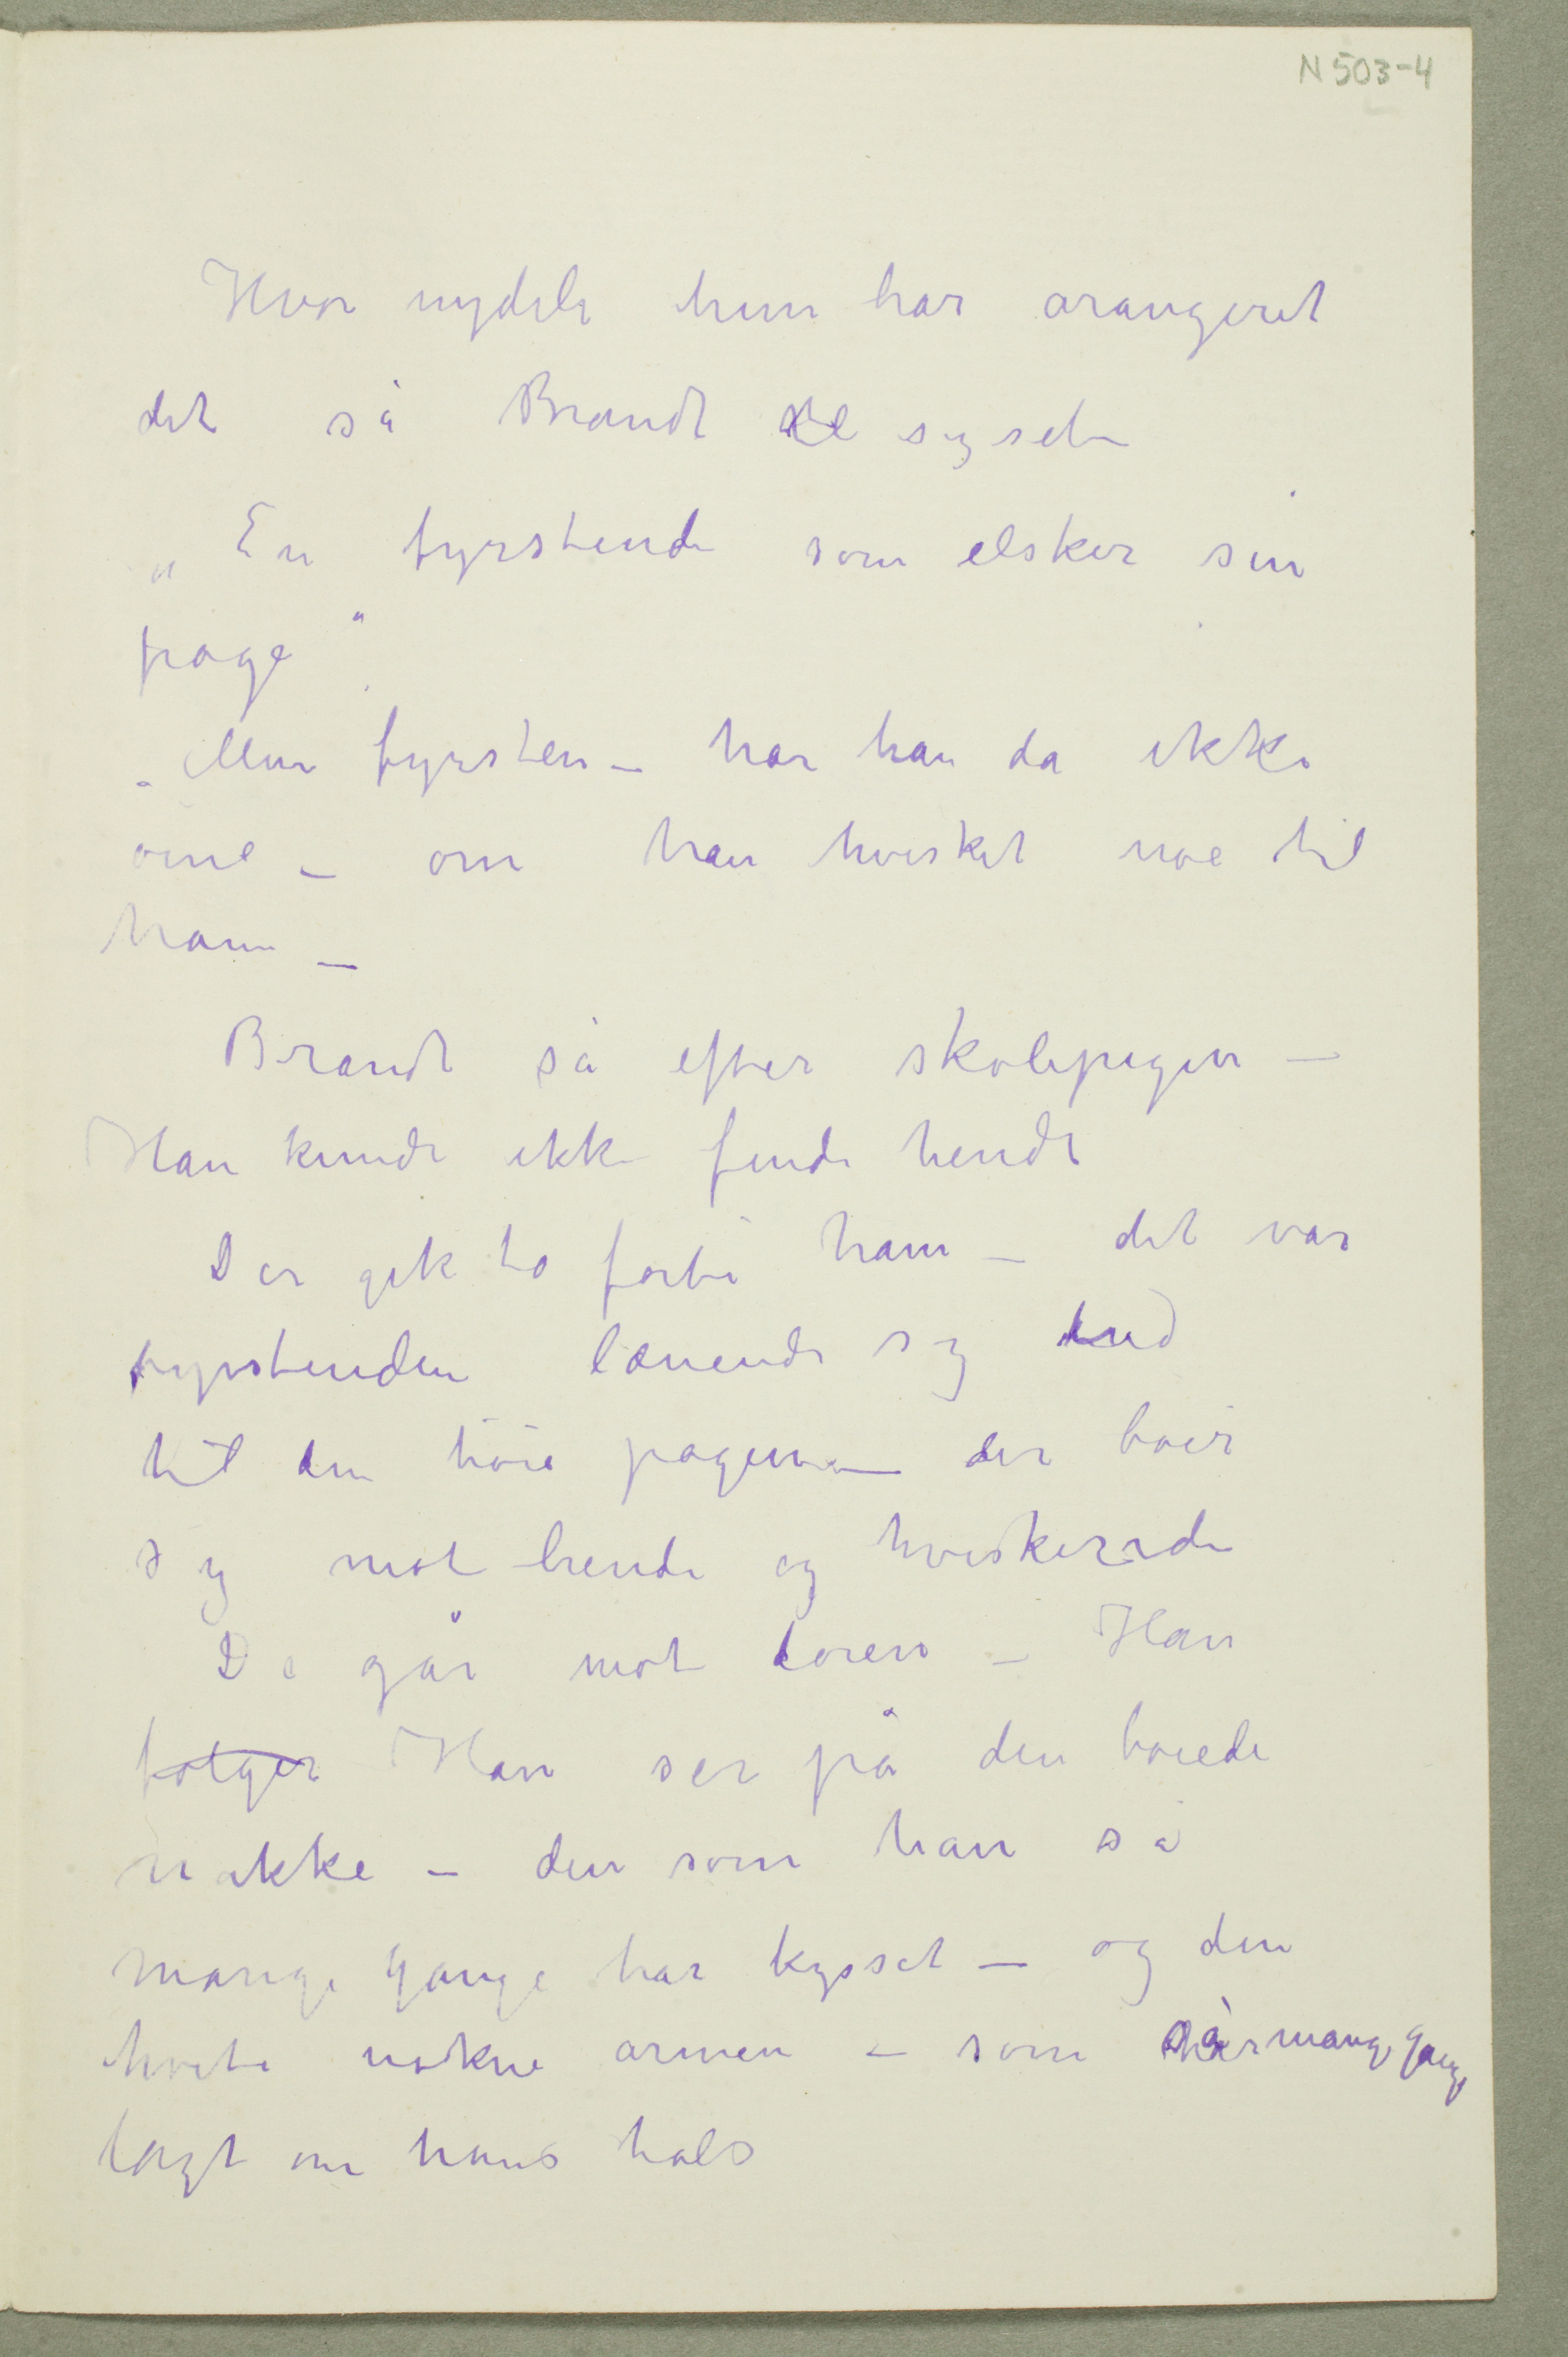 N 503-4
Hvor nydeli hun har arangeret
det så Brandt til sig selv
„En fyrstinde som elsker sin
page“.
„Men fyrsten – har han da ikke
öine – om han hvisket noe til
ham –
Brandt så efter skolepigen –
Han kunde ikke finde hende
Der gik to forbi ham – det var
fyrstinden lænende sig ind
til den höie pagen – der böier
sig mot hende og hviskende
De går mot dören – Han
følger Han ser på den böiede
nakke – den som han så
mange gange har kysset – og den
hvite nakne armen – som så mange gange
lagt om hans hals